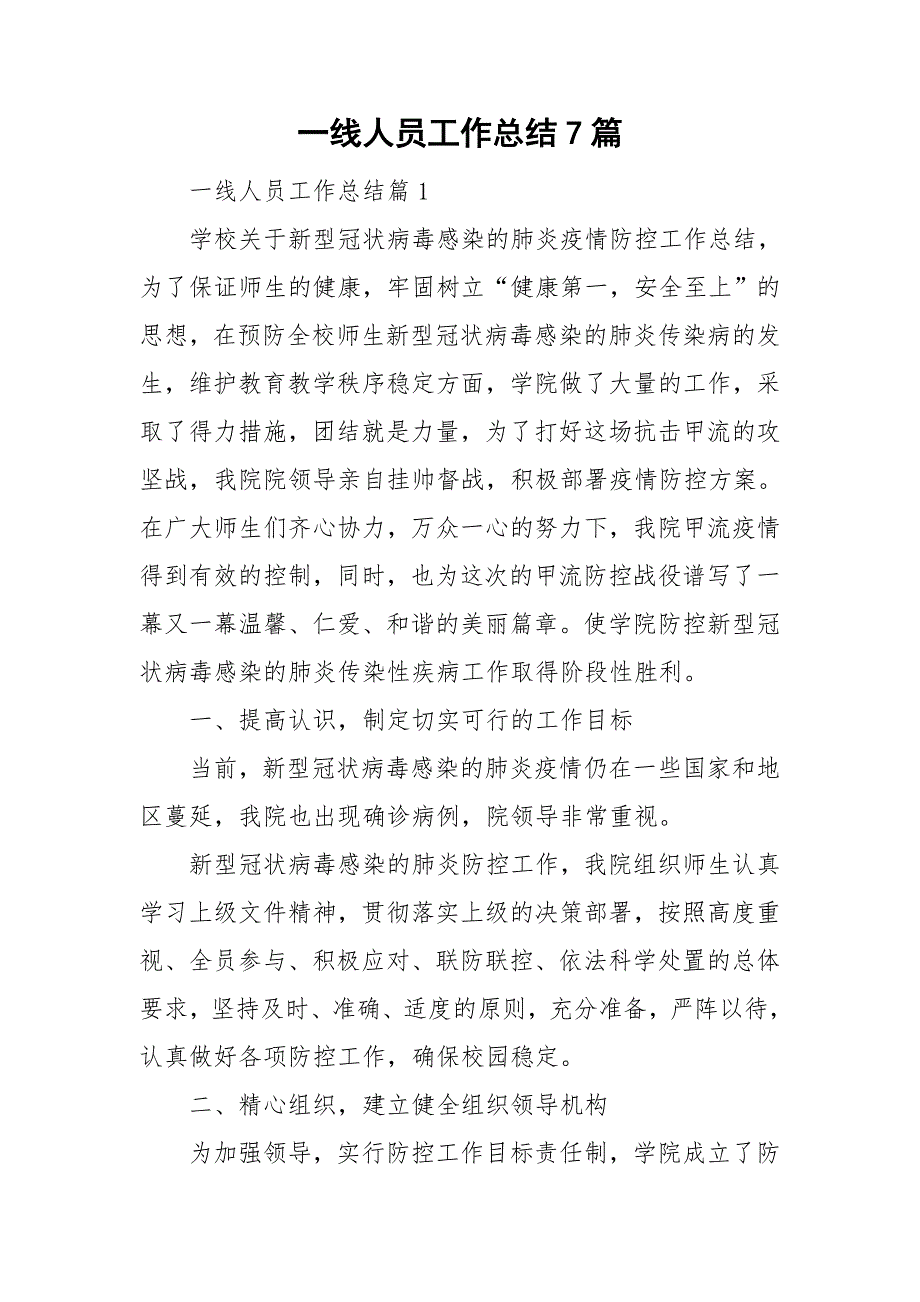 一线人员工作总结7篇
一线人员工作总结篇1
学校关于新型冠状病毒感染的肺炎疫情防控工作总结，
为了保证师生的健康，牢固树立“健康第一，安全至上”的
思想，在预防全校师生新型冠状病毒感染的肺炎传染病的发
生，维护教育教学秩序稳定方面，学院做了大量的工作，采
取了得力措施，团结就是力量，为了打好这场抗击甲流的攻
坚战，我院院领导亲自挂帅督战，积极部署疫情防控方案。
在广大师生们齐心协力，万众一心的努力下，我院甲流疫情
得到有效的控制，同时，也为这次的甲流防控战役谱写了一
幕又一幕温馨、仁爱、和谐的美丽篇章。使学院防控新型冠
状病毒感染的肺炎传染性疾病工作取得阶段性胜利。
一、提高认识，制定切实可行的工作目标
当前，新型冠状病毒感染的肺炎疫情仍在一些国家和地
区蔓延，我院也出现确诊病例，院领导非常重视。
新型冠状病毒感染的肺炎防控工作，我院组织师生认真
学习上级文件精神，贯彻落实上级的决策部署，按照高度重
视、全员参与、积极应对、联防联控、依法科学处置的总体
要求，坚持及时、准确、适度的原则，充分准备，严阵以待，
认真做好各项防控工作，确保校园稳定。
二、精心组织，建立健全组织领导机构
为加强领导，实行防控工作目标责任制，学院成立了防